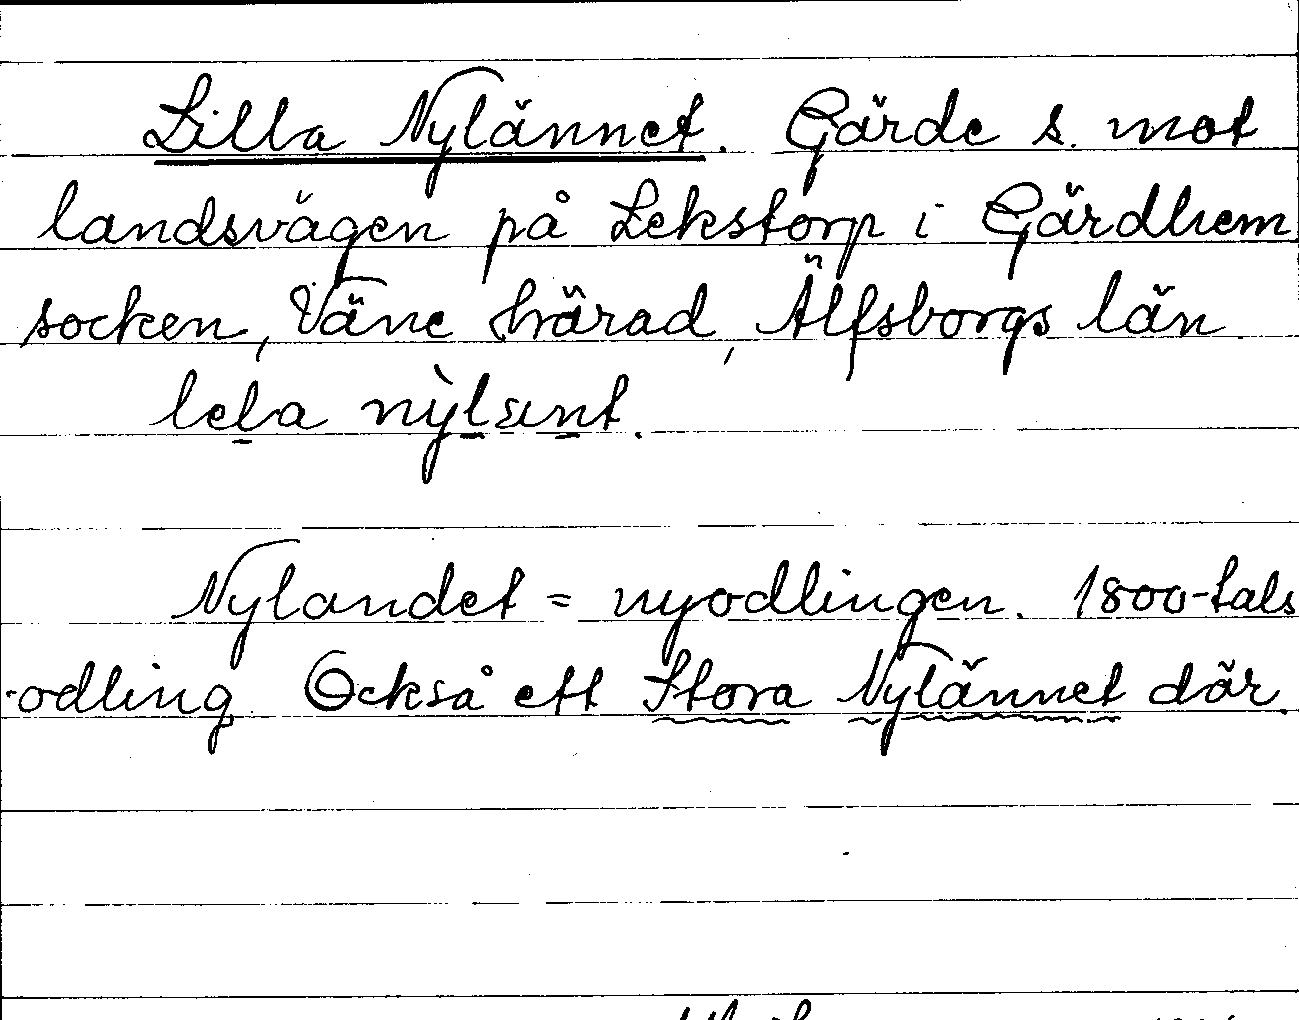 Lilla Nylännet. Gärde s. mot
landsvägen på Lekstorp i Gärdhem
socken, Väne härad, Älfsborgs län
lela nỳlænt.
Nylandet = nyodlingen. 1800-tals
-odling. Också ett Stora Nylännet där.